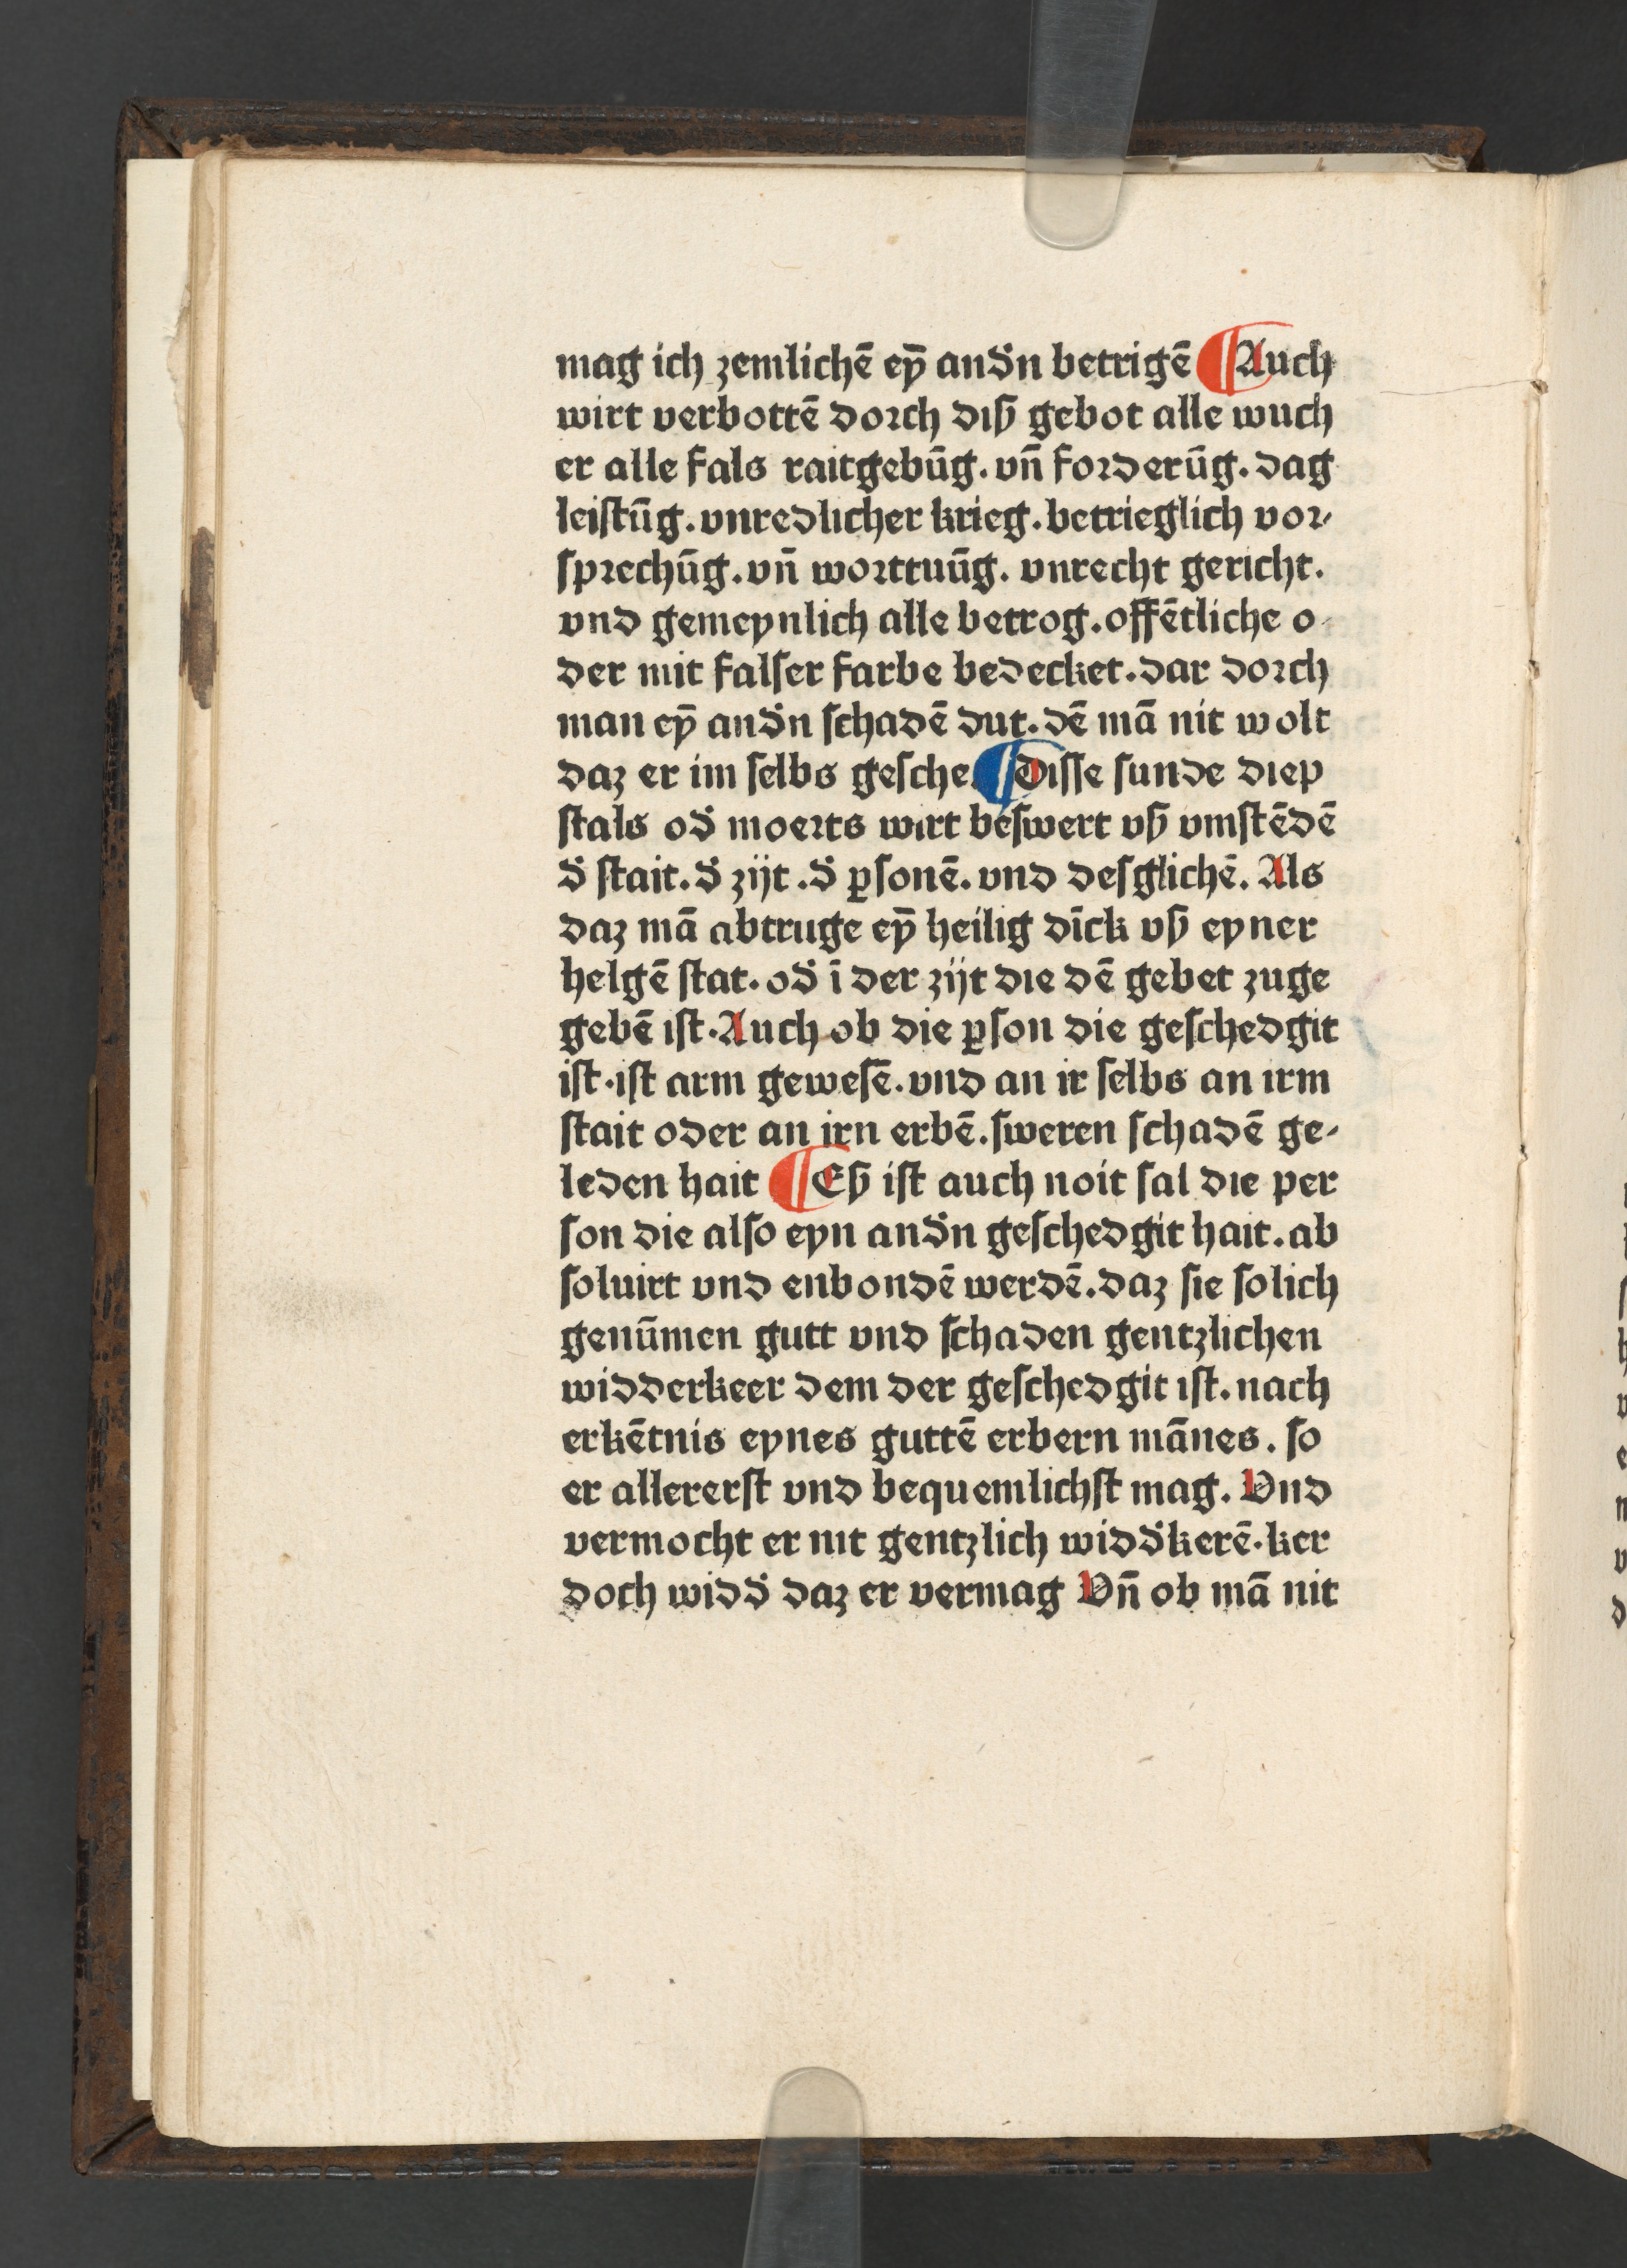 mag ich zemlichē eȳ and̉n betrigē ¶ Auch
wirt verbottē dorch diß gebot alle wuch
er alle fals raitgebūg. vn̄ forderūg. dag
leiſtūg. vnredlicher krieg. betrieglich vor⸗
ſprechūg. vn̄ worttuūg. vnrecht gericht.
vnd gemeynlich alle betrog. offētliche o⸗
der mit falſer farbe bedecket. dar dorch
man eȳ and̉n ſchadē dut. dē mā nit wolt
daz er im ſelbs geſche. ¶ Diſſe ſunde diep
ſtals od̉ moerts wirt beſwert vß vmſtēdē
d̉ ſtait. d̉ zijt. d̉ ꝑſonē. vnd desglichē. Als
daz mā abtruge eȳ heilig dīck vß eyner
helgē ſtat. od̉ ī der zijt die dē gebet zuge
gebē iſt. Auch ob die ꝑſon die geſchedgit
iſt. iſt arm geweſē. vnd an ir ſelbs an irm
ſtait oder an irn erbē. ſweren ſchadē ge⸗
leden hait ¶ Eß iſt auch noit ſal die per
ſon die alſo eyn and̉n geſchedgit hait. ab
ſoluirt vnd enbondē werdē. daz ſie ſolich
genūmen gutt vnd ſchaden gentzlichen
widderkeer dem der geſchedgit iſt. nach
erkētnis eynes guttē erbern mānes. ſo
er allererſt vnd bequemlichſt mag. Vnd
vermocht er nit gentzlich widd̉kerē. ker
doch widd̉ daz er vermag Vn̄ ob mā nit